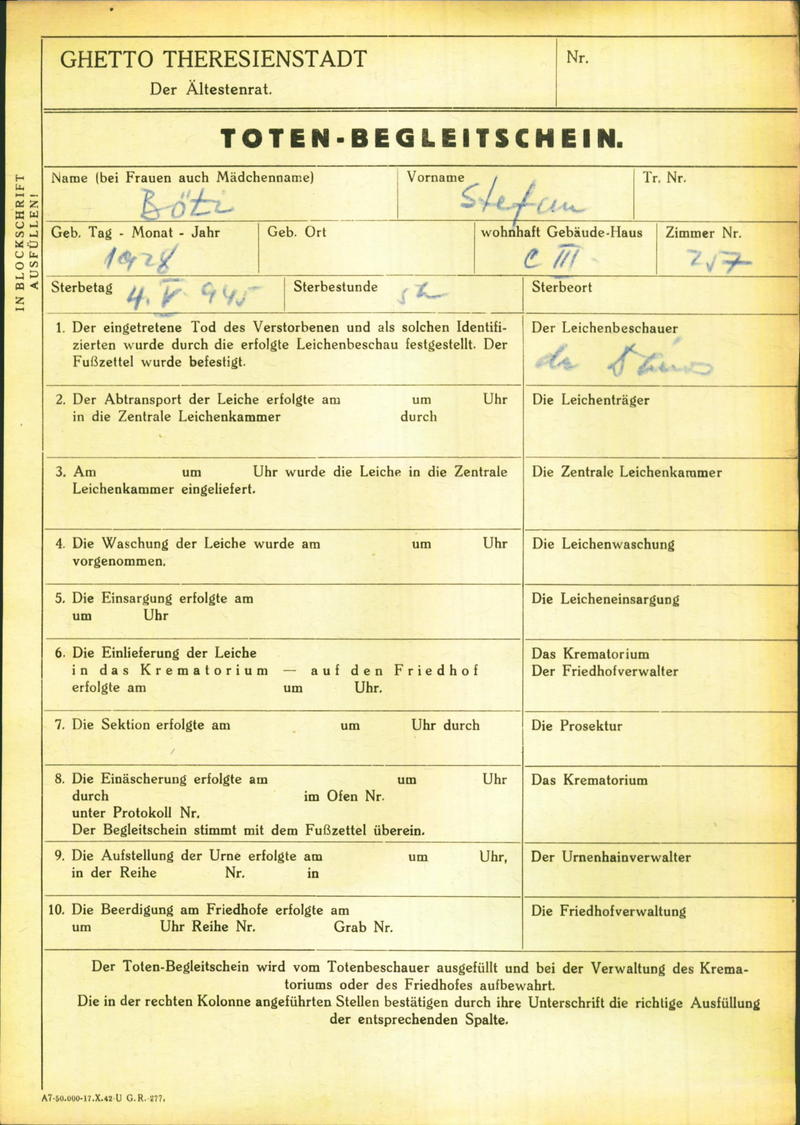 GHETTO THERESIENSTADT
Der Ältestenrat.
Nr.
TOTEN-BEGLEITSCHEIN.
IN BLOCKSCHRIFT
AUSFÜLLEN!
Name (bei Frauen auch Mädchenname)
Vorname
Tr. Nr.
Stefan
Geb. Tag - Monat - Jahr
Geb. Ort
wohnhaft Gebäude-Haus
Zimmer Nr.
1928
C III
257
Sterbetag 4. V 945
Sterbestunde 5 h
Sterbeort
1. Der eingetretene Tod des Verstorbenen und als solchen Identifi-
zierten wurde durch die erfolgte Leichenbeschau festgestellt. Der
Fußzettel wurde befestigt.
Der Leichenbeschauer
2. Der Abtransport der Leiche erfolgte am um Uhr
in die Zentrale Leichenkammer durch
Die Leichenträger
3. Am um Uhr wurde die Leiche in die Zentrale
Leichenkammer eingeliefert.
Die Zentrale Leichenkammer
4. Die Waschung der Leiche wurde am um Uhr
vorgenommen.
Die Leichenwaschung
5. Die Einsargung erfolgte am
um Uhr
Die Leicheneinsargung
6. Die Einlieferung der Leiche
in das Krematorium — auf den Friedhof
erfolgte am um Uhr.
Das Krematorium
Der Friedhofverwalter
7. Die Sektion erfolgte am um Uhr durch
Die Prosektur
8. Die Einäscherung erfolgte am um Uhr
durch im Ofen Nr.
unter Protokoll Nr.
Der Begleitschein stimmt mit dem Fußzettel überein.
Das Krematorium
9. Die Aufstellung der Urne erfolgte am um Uhr,
in der Reihe Nr. in
Der Urnenhainverwalter
10. Die Beerdigung am Friedhofe erfolgte am
um Uhr Reihe Nr. Grab Nr.
Die Friedhofverwaltung
Der Toten-Begleitschein wird vom Totenbeschauer ausgefüllt und bei der Verwaltung des Krema-
toriums oder des Friedhofes aufbewahrt.
Die in der rechten Kolonne angeführten Stellen bestätigen durch ihre Unterschrift die richtige Ausfüllung
der entsprechenden Spalte.
A7-50.000-17.X.42 U G.R.-277.